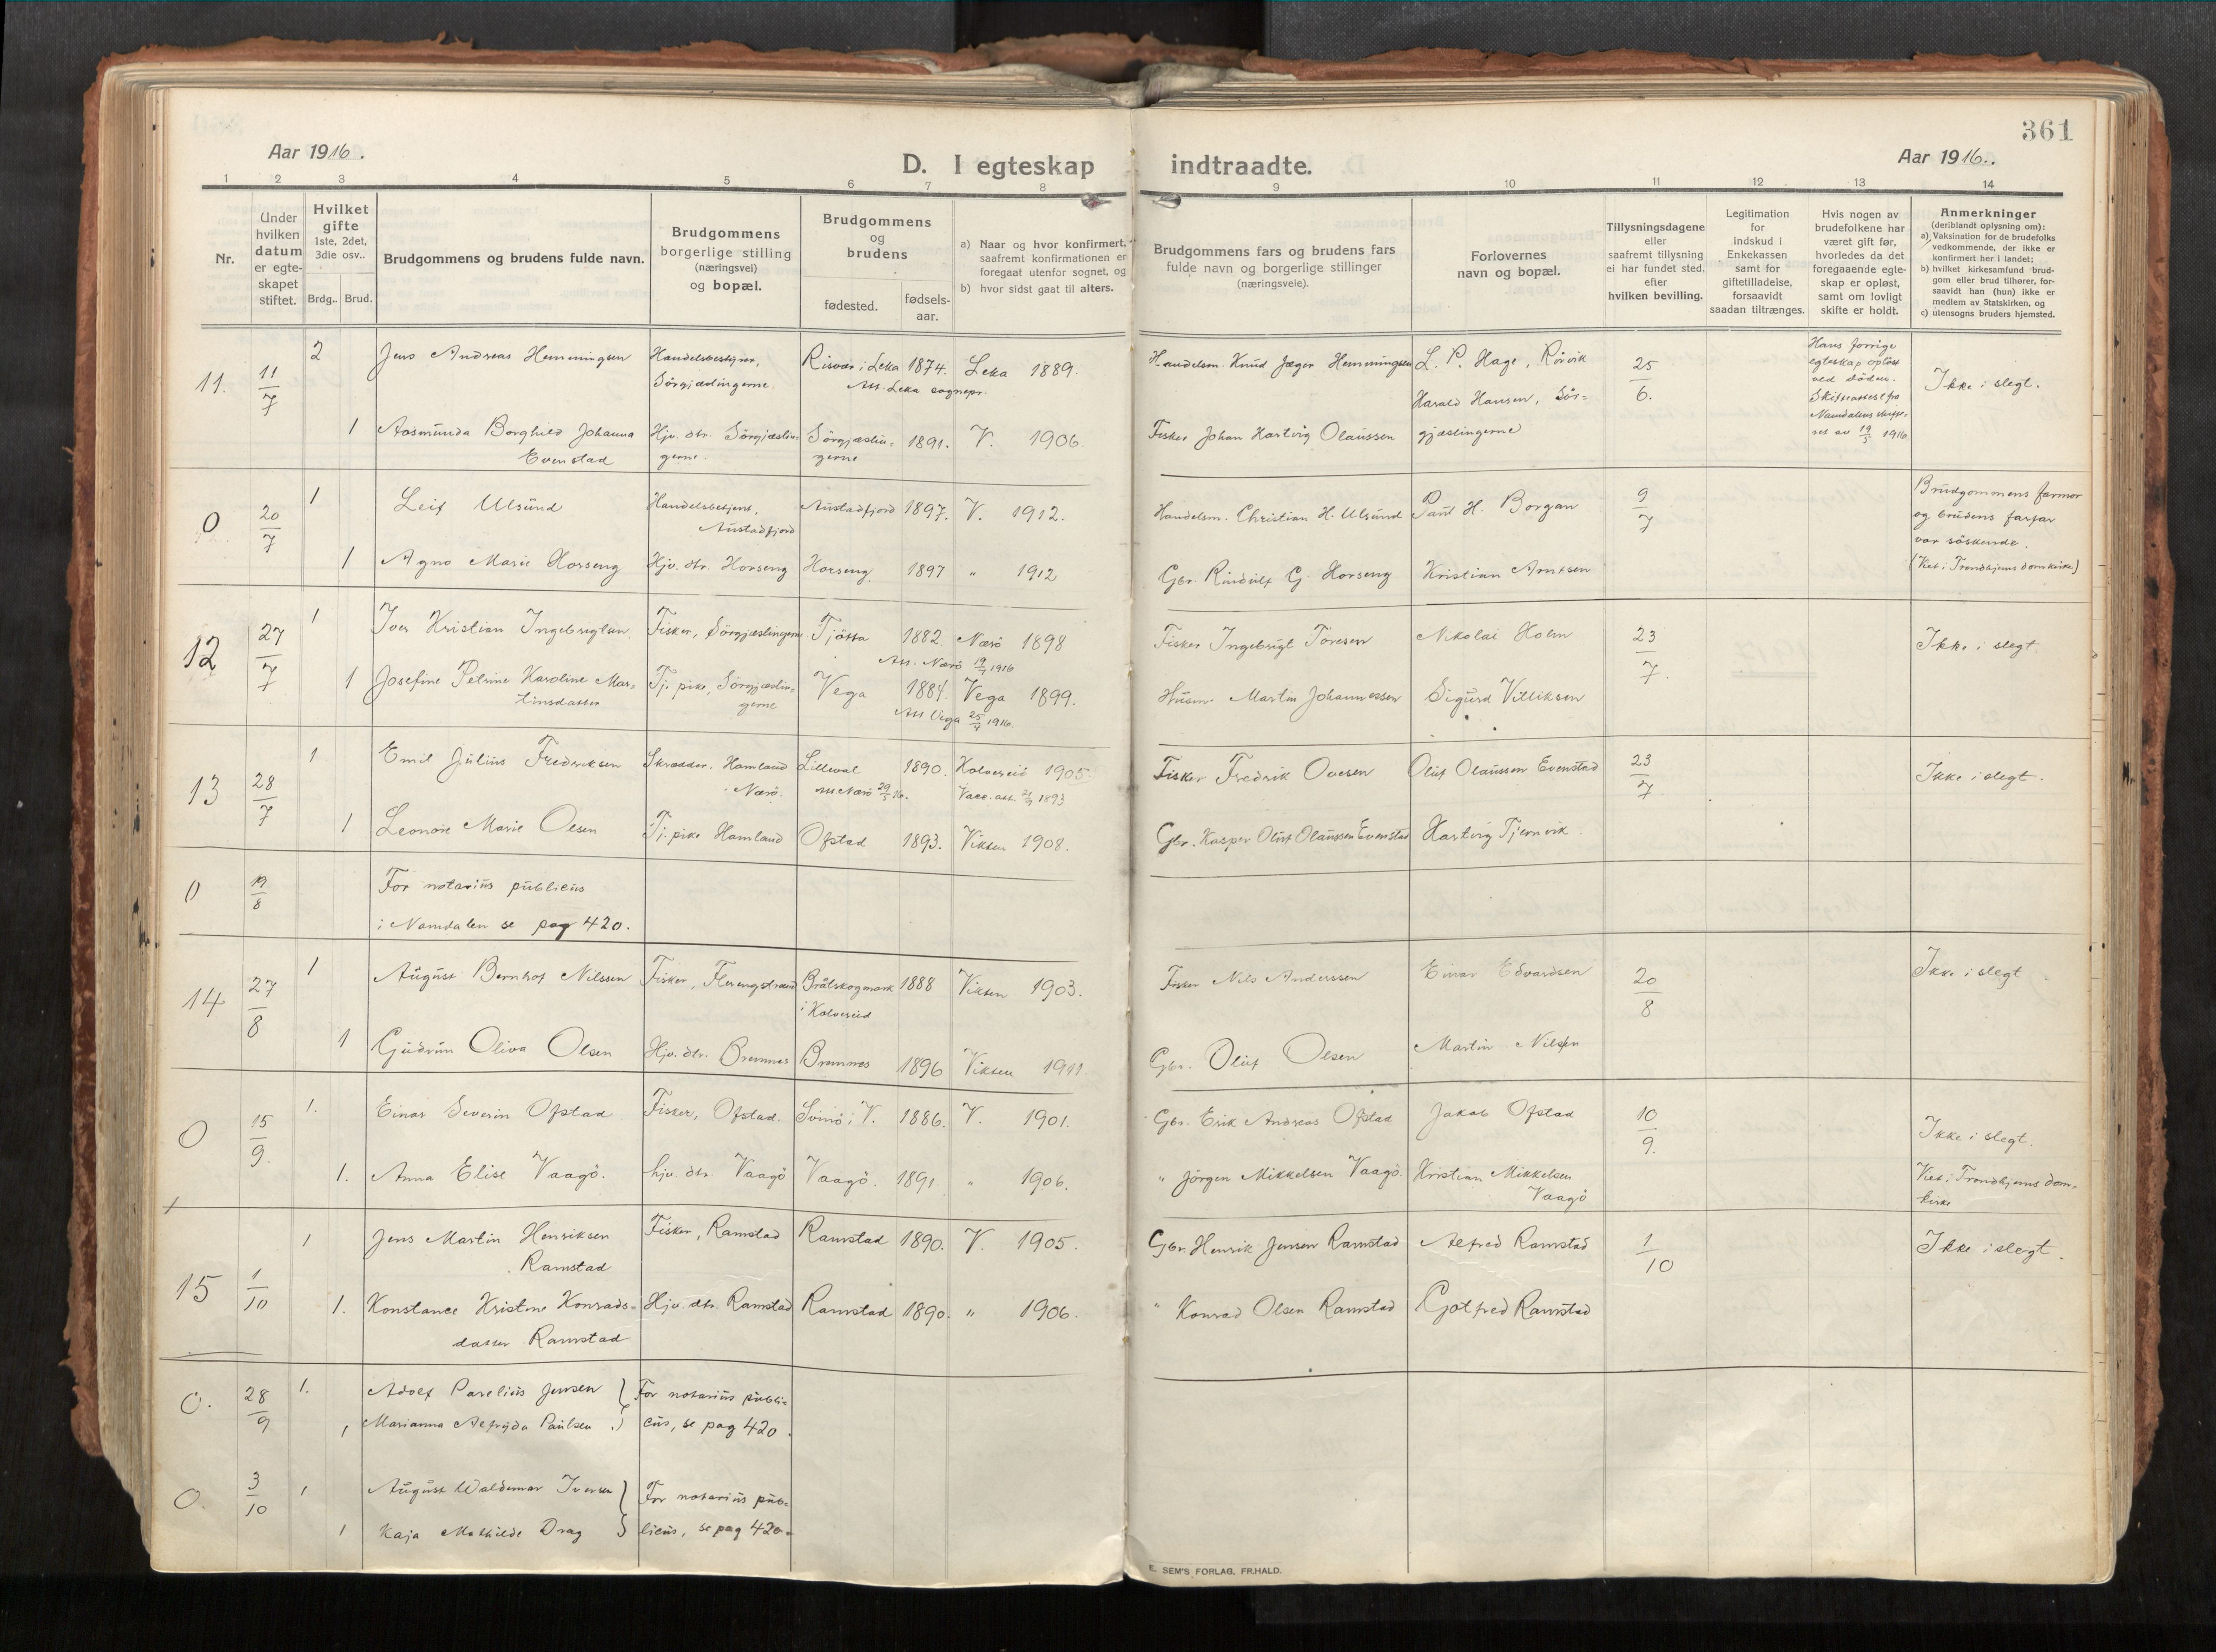 361
Aar 1916.
Aar 1916.
D. I egteskap indtraadte.
1 2 3 4 5 6 7 8 9 10 11 12 13 14
Nr.
Under
hvilken
datum
er egte-
skapet
stiftet.
Hvilket
gifte
1ste, 2det,
3die osv..
Brdg.. Brud.
Brudgommens og brudens fulde navn.
Brudgommens
borgerlige stilling
(næringsvei)
og bopæl.
Brudgommens
og
brudens
fødested.
fødsels-
aar.
a) Naar og hvor konfirmert,
saafremt konfirmationen er
foregaat utenfor sognet, og
b) hvor sidst gaat til alters.
Brudgommens fars og brudens fars
fulde navn og borgerlige stillinger
(næringsveie).
Forlovernes
navn og bopæl.
Tillysningsdagene
eller
saafremt tillysning
ei har fundet sted,
efter
hvilken bevilling.
Legitimation
for
indskud i
Enkekassen
samt for
giftetilladelse,
forsaavidt
saadan tiltrænges.
Hvis nogen av
brudefolkene har
været gift før,
hvorledes da det
foregaaende egte-
skap er opløst,
samt om lovligt
skifte er holdt.
Anmerkninger
(deriblandt oplysning om):
a) Vaksination for de brudefolks
vedkommende, der ikke er
konfirmert her i landet;
b) hvilket kirkesamfund brud-
gom eller brud tilhører, for-
saavidt han (hun) ikke er
medlem av Statskirken, og
c) utensogns bruders hjemsted.
11. 11/7 2 Jens Andreas Hemmingsen
Handelsbestyrer,
Sörgjæslingerne.
Risvær i Leka 1874. Leka 1889.
Att. Leka sognepr.
Handelsm. Knud Jæger Hemmingsen
L. P. Hage, Rörvik
25/6.
Hans forrige
egteskap opløst
ved döden.
Skifteattest fra
Namdalens skifte-
ret av 19/5 1916.
Ikke i slegt.
1 Aasmunda Borghild Johanna
Evenstad
Hjv. dtr. Sörgjæslin-
gerne.
Sörgjæslin-
gerne
1891. V. 1906.
Fisker Johan Hartvig Olaussen
Harald Hansen, Sör-
gjæslingerne
0 20/7 1 Leif Ulsund
Handelsbetjent,
Austadfjord
Austadfjord 1897. V. 1912.
Handelsm. Christian H. Ulsund
Paul H. Borgan
9/7
Brudgommens farmor
og brudens farfar
var söskende.
(Viet i Trondhjems domkirke)
1 Agno Marie Horseng
Hjv. dtr. Horseng
Horseng 1897 " 1912
Gbr. Rindulf G. Horseng
Kristian Arntsen
12 27/7 1 Iver Kristian Ingebrigtsen
Fisker, Sörgjæslingerne
Tjötta 1882. Nærö 1898
Att. Nærö 19/7 1916
Fisker Ingebrigt Toresen
Nikolai Holm
23/7.
Ikke i slegt.
1 Josefine Petrine Karoline Mar-
tinsdatter
Tj. pike, Sörgjæslin-
gerne
Vega 1884. Vega 1899.
Att Vega 25/4 1916.
Husm. Martin Johannessen
Sigurd Villiksen
13 28/7 1 Emil Julius Frederiksen
Skrædder, Hamland
i Nærö.
Lilleval 1890. Kolvereid 1905.
Att. Nærö 29/5 16. Vacc. att. 21/9 1893
Fisker Fredrik Ovesen
Oluf Olaussen Evenstad
23/7
Ikke i slegt.
1 Leonore Marie Olsen
Tj. pike Hamland
Ofstad 1893. Vikten 1908.
Gbr. Kasper Oluf Olaussen Evenstad
Hartvig Tjernvik
0 19/8 For notarius publicus
i Namdalen se pag 420.
14 27/8 1 August Bernhof Nilssen
Fisker, Flerengstrand
Bråtskogmark
i Kolvereid
1888 Vikten 1903.
Fisker Nils Anderssen
Einar Edvardsen
20/8
Ikke i slegt
1 Gudrun Oliva Olsen
Hjv. dtr. Bremnes
Bremnes 1896 Vikten 1911.
Gbr. Oluf Olsen
Martin Nilsen
0 15/9. 1. Einar Severin Ofstad
Fisker, Ofstad.
Svinö i V. 1886. V. 1901.
Gbr. Erik Andreas Ofstad
Jakob Ofstad
10/9.
Ikke i slegt.
1. Anna Elise Vaagö.
hjv. dtr. Vaagö
Vaagö. 1891 " 1906.
" Jörgen Mikkelsen Vaagö.
Kristian Mikkelsen
Vaagö
Viet i Trondhjems dom-
kirke
15 1/10 1 Jens Martin Henriksen
Ramstad
Fisker, Ramstad
Ramstad 1890. V. 1905.
Gbr. Henrik Jensen Ramstad
Alfred Ramstad
1/10
Ikke i slegt.
1. Konstance Kristine Konrads-
datter Ramstad
Hjv. dtr. Ramstad
Ramstad 1890. " 1906.
" Konrad Olsen Ramstad
Gotfred Ramstad
0. 28/9 1. Adolf Parelius Jensen
1 Marianna Alfryda Paulsen
For notarius publi-
cus, se pag 420.
0. 3/10 1 August Waldemar Iversen
1 Kaja Mathilde Drag
For notarius pub-
licus, se pag 420.
E. SEM'S FORLAG, FR.HALD.